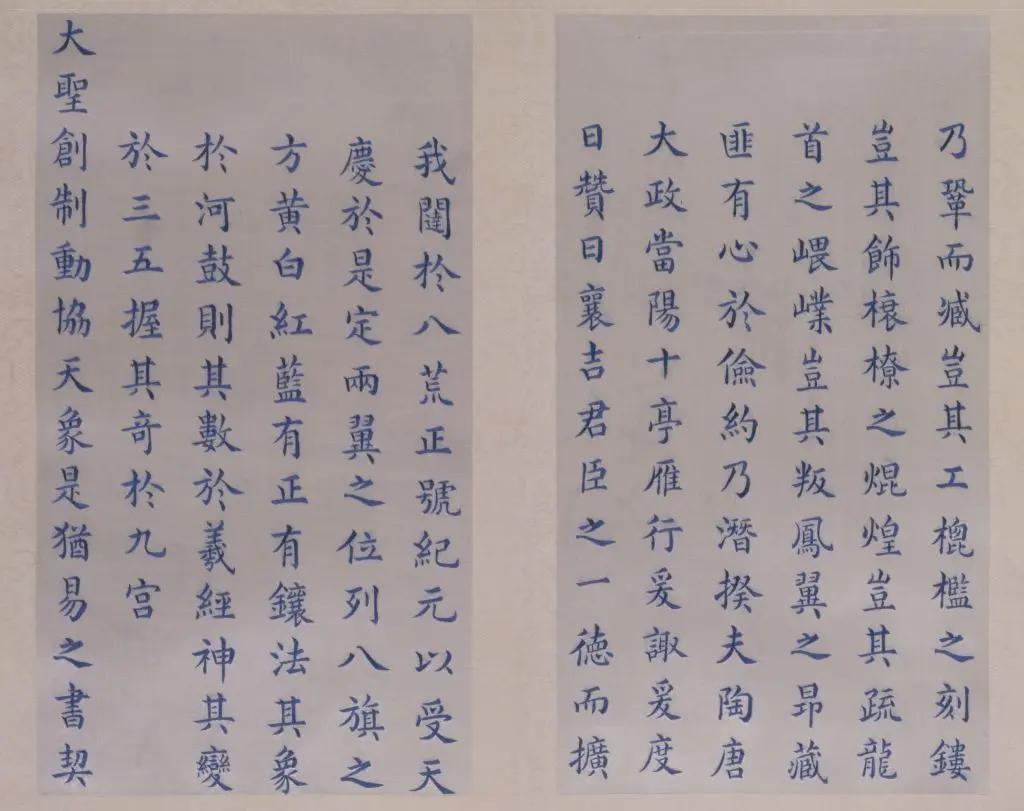 乃鞏而臧豈其工㮰檻之刻鏤
豈其飾榱橑之焜煌豈其疏龍
首之嵔嶫豈其叛鳳翼之昂藏
匪有心於儉約乃潛揆夫陶唐
大政當陽十亭雁行爰諏爰度
曰贊曰襄吉君臣之一德而擴
我闥於八荒正號紀元以受天
慶於是定兩翼之位列八旗之
方黃白紅藍有正有鑲法其象
於河鼓則其數於羲經神其變
於三五握其奇於九宮
大聖創制動協天象是猶易之書契